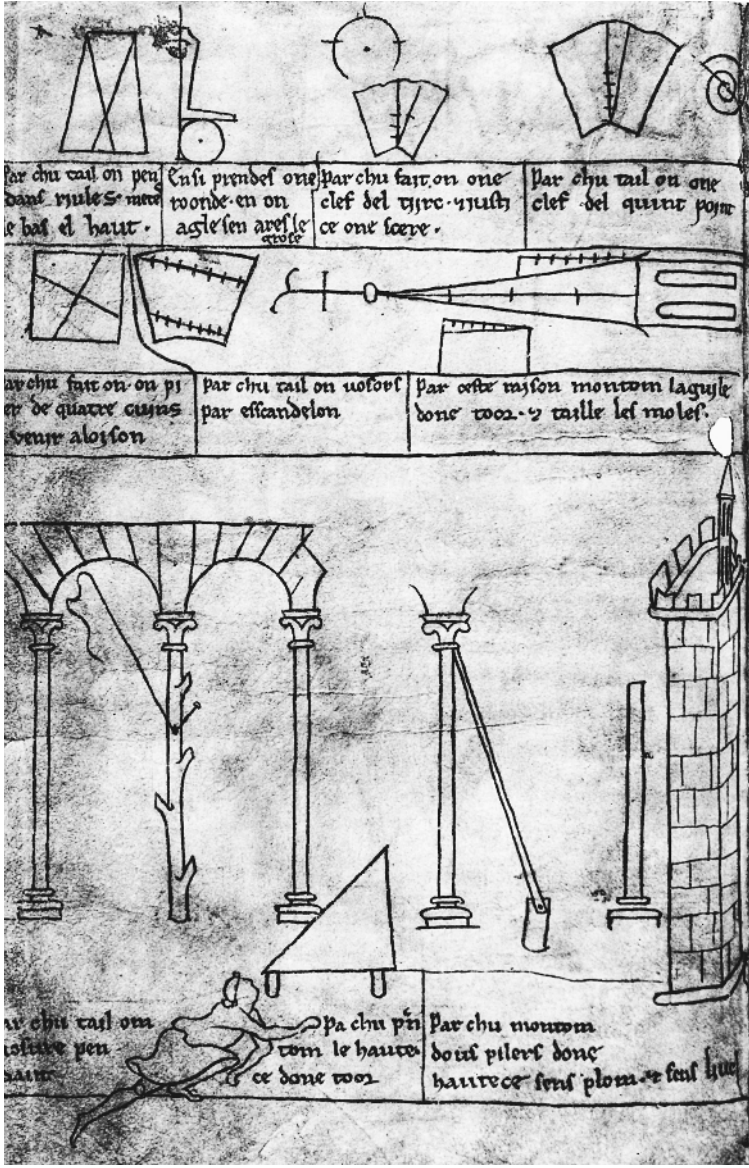 ar chu tail on pen
dans riules· mete
e bas el haut·
Ensi prendes one
roonde· en on
agle sen ares le
grose
par chu fait· on one
clef del tiirc· ⁊ iusti
ce one scere·
par chu tail on one
clef del quint point
ar chu fait on· on pi
er de quatre cuins
venir aloison
par chu tail on vosors
par esscandelon
par ceste raison montom laguile
done toor· ⁊ taille les moles·
ar chu tail om
vosure pen
par chu pren
tom le haute
ce done toor
par chu montom
dous pilers done
hautece sens plom· ⁊ sens livel